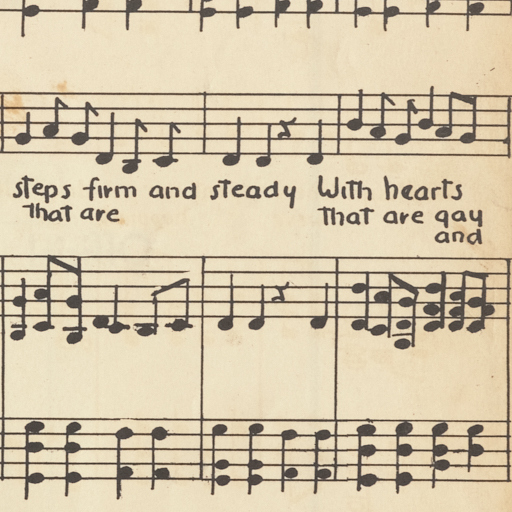 steps firm and steady With hearts
that are that are gay
and